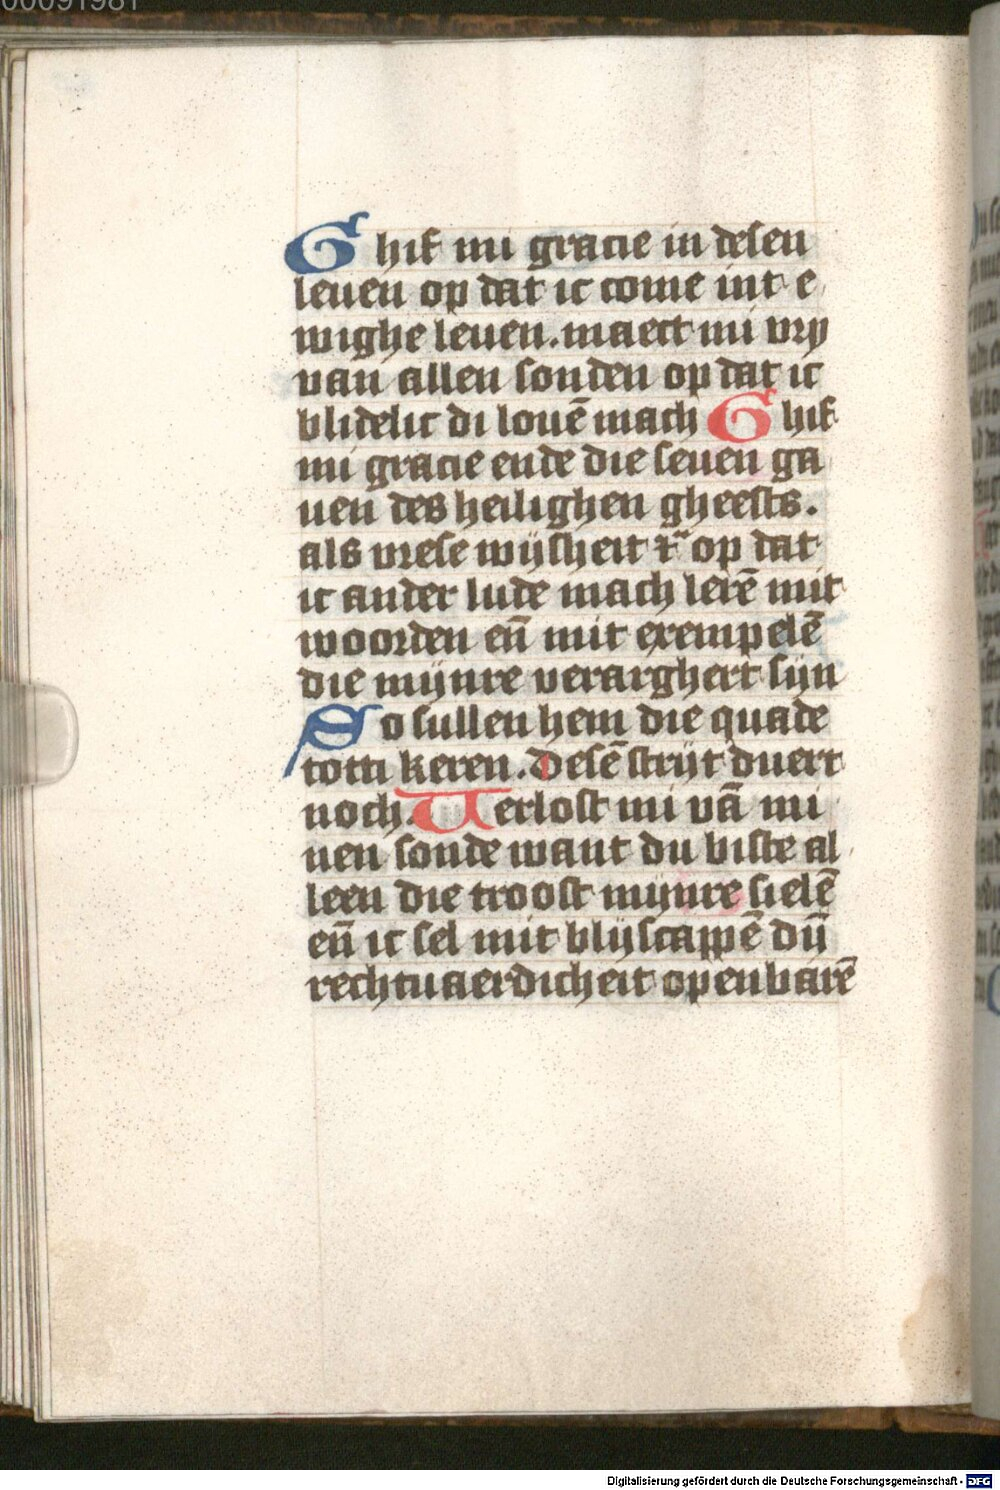 00091981
Ghif mi gracie in desen
leuen op dat ic come int e
wighe leuen. maect mi vry
van allen sonden op dat ic
blidelic di louē mach Ghif
mi gracie ende die seuen ga
uen des heilighen gheests.
als vrese wijsheit ⁊c̄ op dat
ic ander lude mach lerē mit
woorden eñ mit exempelē
die mijnre verarghert sijn
So sullen hem die quade
totti keren. Desē strijt duert
noch. Uerlost mi vā mi
nen sonde want du biste al
leen die troost mijnre sielē
eñ ic sel mit blijscappē dijn̄
rechtuaerdicheit openbarē
Digitalisierung gefördert durch die Deutsche Forschungsgemeinschaft - DFG